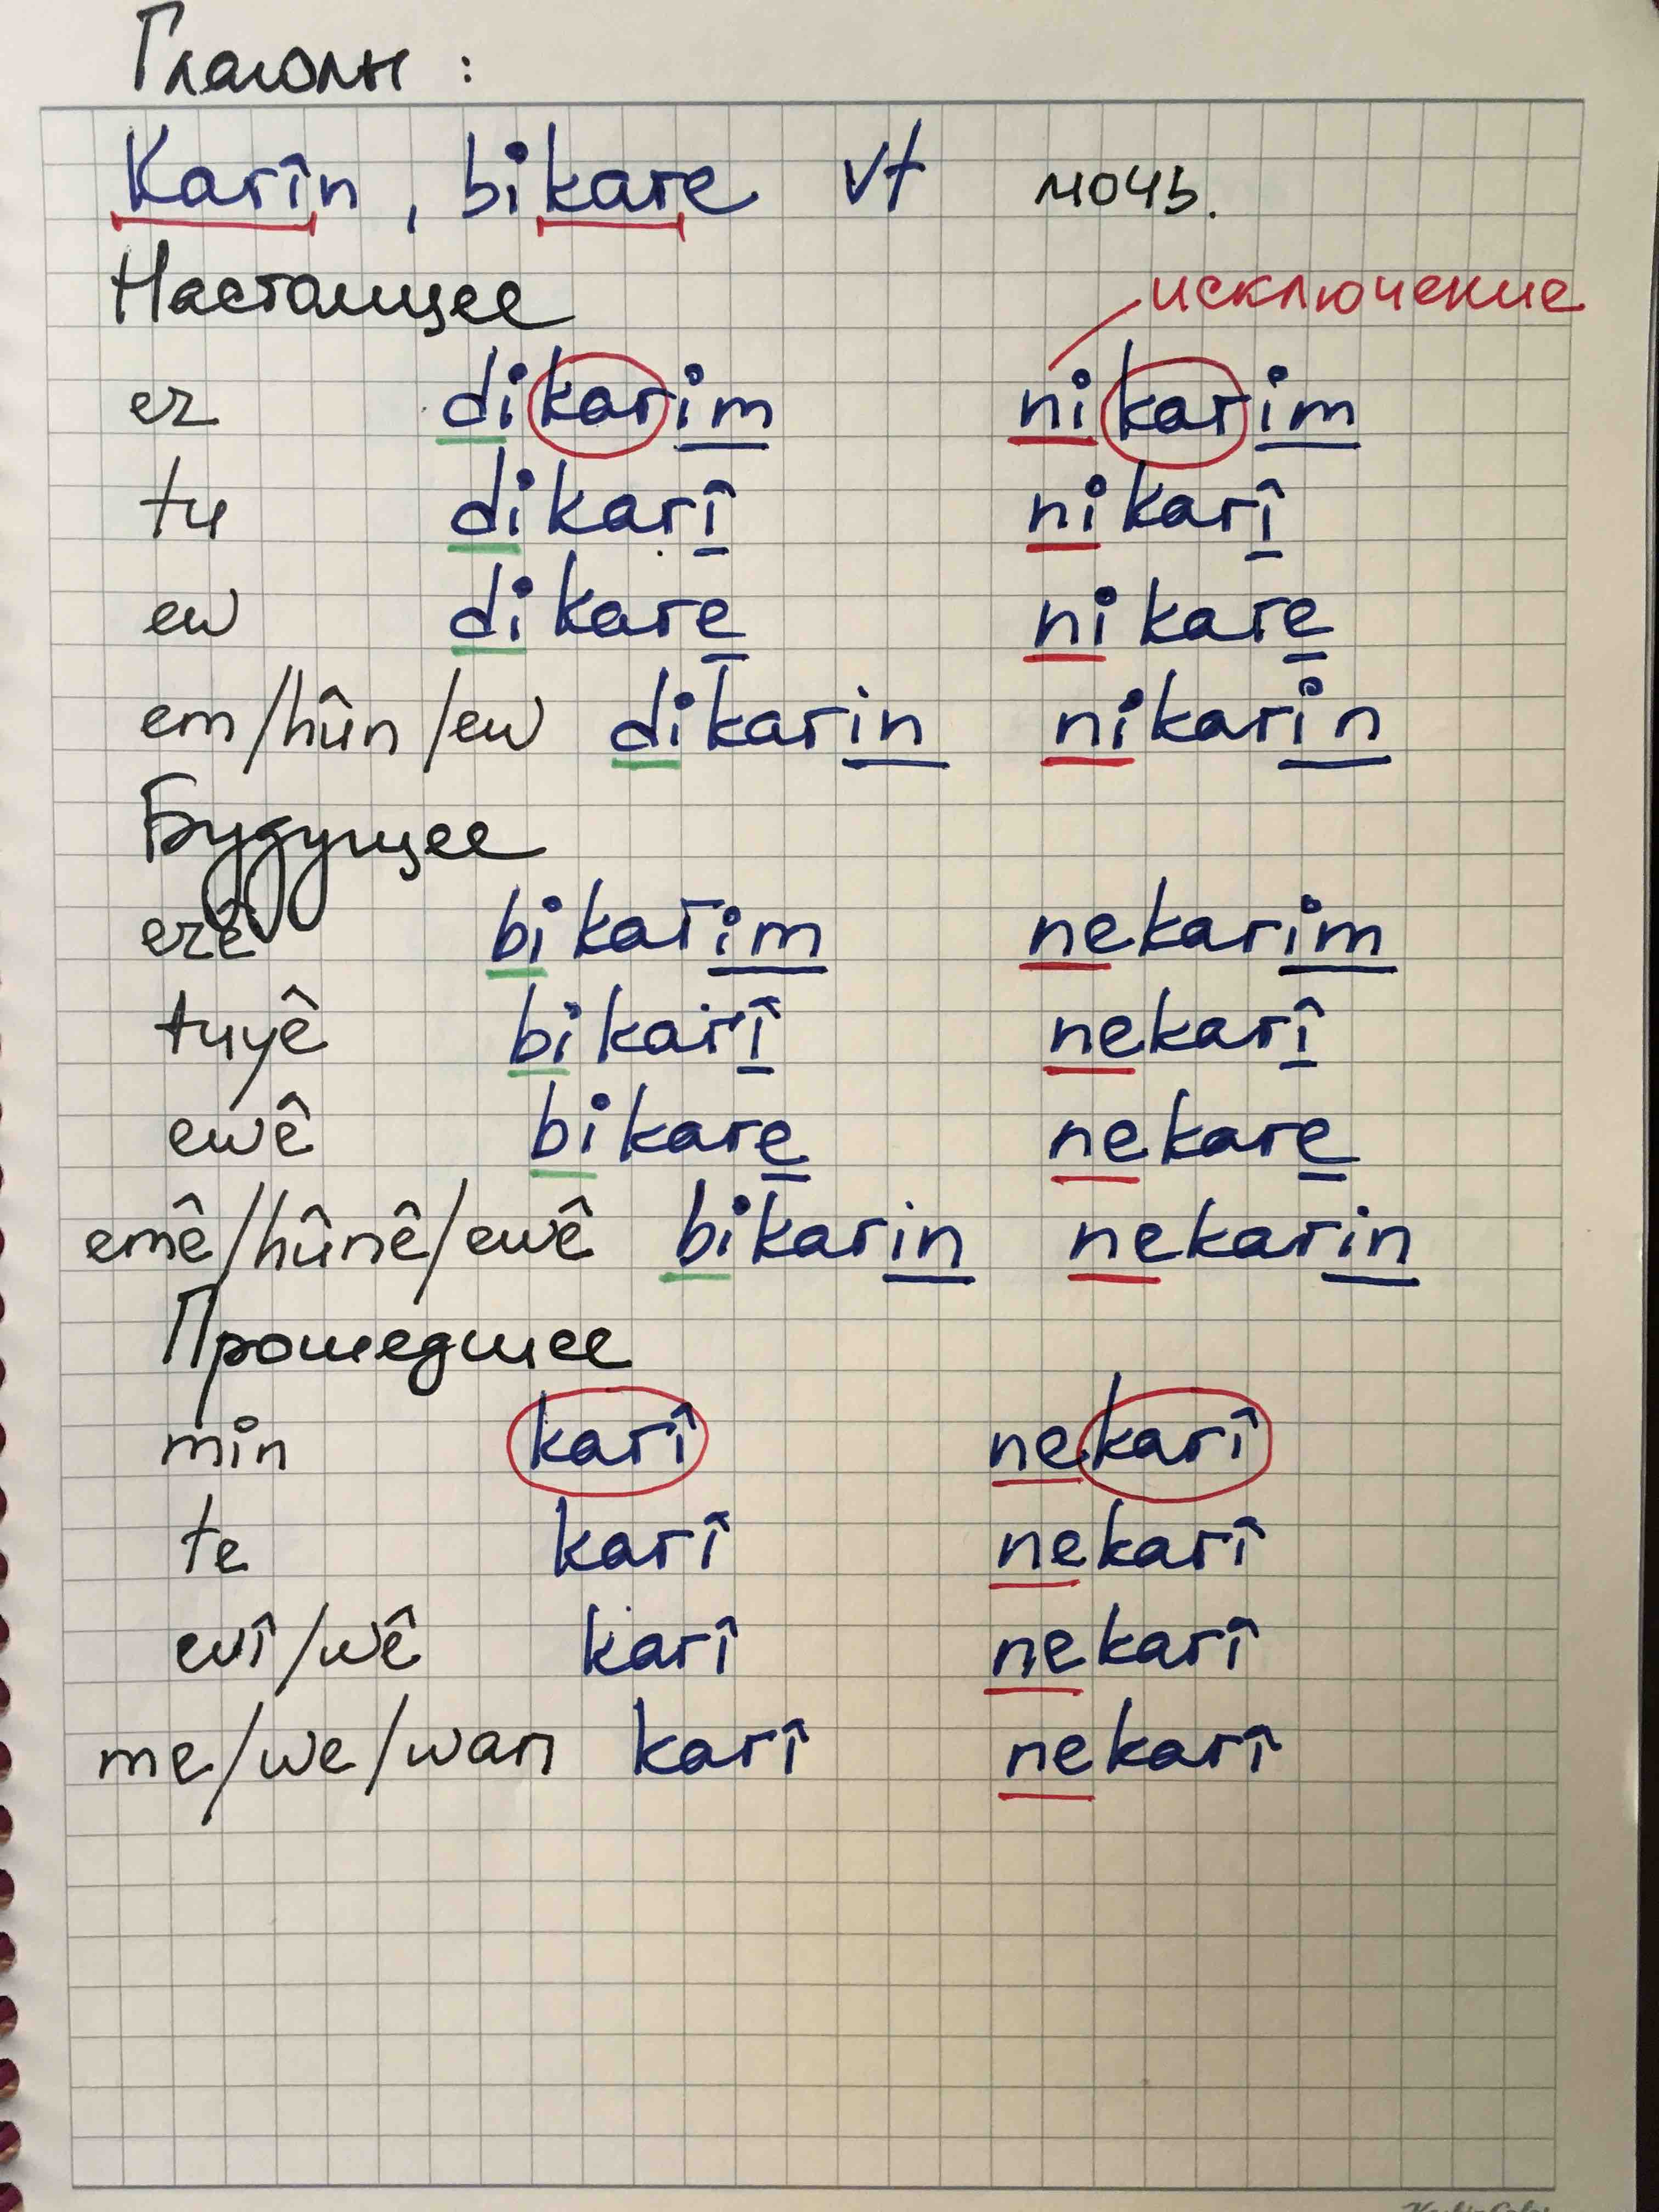 Глаголы :
Karîn, bikare vt мочь.
Настоящее
исключение
ez dikarim nikarim
tu dikarî nikarî
ew dikare nikare
em/hûn/ew dikarin nikarin
Будущее
ezê bikarim nekarim
tuyê bikarî nekarî
ewê bikare nekare
emê/hûnê/ewê bikarin nekarin
Прошедшее
min karî nekarî
te karî nekarî
wî/wê karî nekarî
me/we/wan karî nekarî